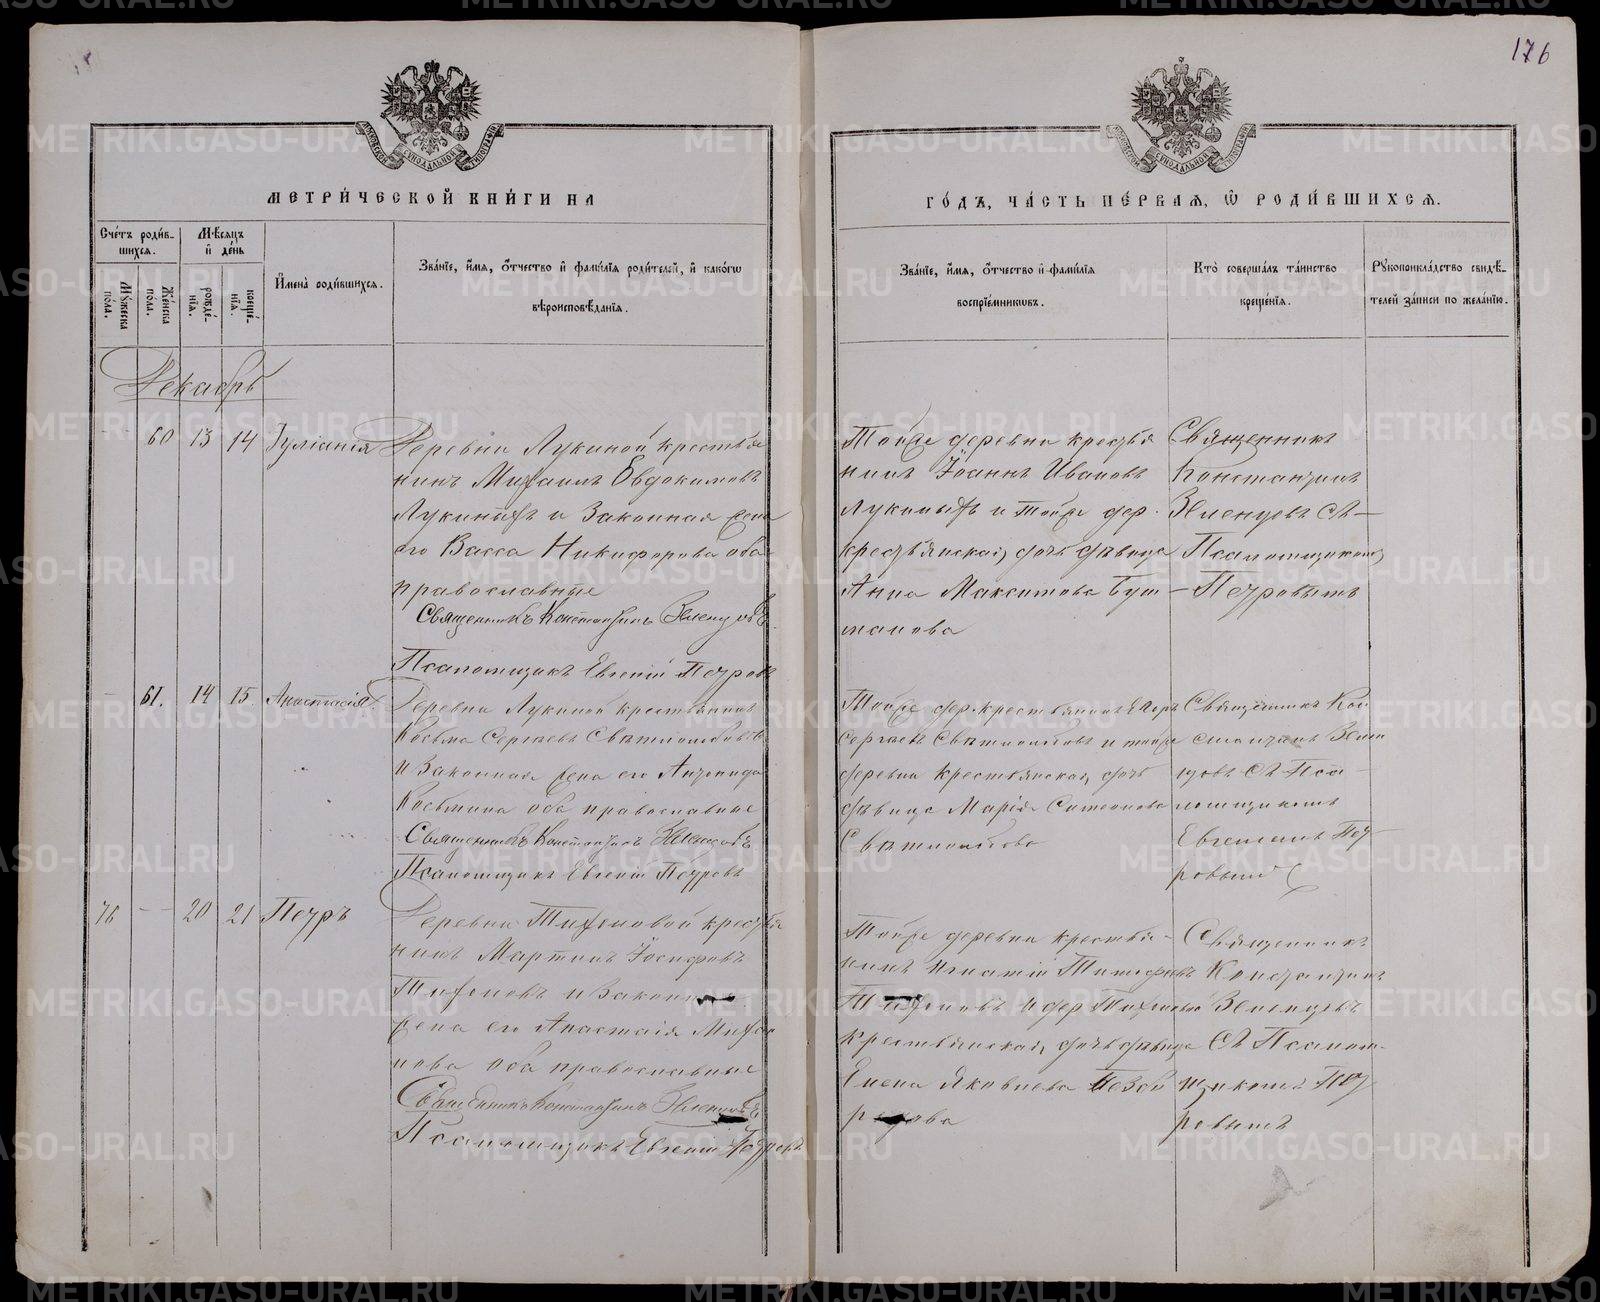 176
МЕТРИ́ЧЕСКОЙ КНИ́ГИ НА
ГО́ДЪ, ЧА́СТЬ ПЕ́РВАЯ, Ѡ РОДИ́ВШИХСЯ.
Сче́тъ роди́в-
шихся.
Му́жеска
по́ла.
Же́нска
по́ла.
Мѣ́сяцъ
и де́нь
рожде́-
нїя.
креще́-
нїя.
Имена̀ роди́вшихся.
Зва́нїе, и́мя, о́тчество и фами́лїя роди́телей, и како́гѡ
вѣроисповѣ́данїя.
Зва́нїе, и́мя, о́тчество и фами́лїя
воспрїе́мникѡвъ.
Кто̀ соверша́лъ та́инство
креще́нїя.
Рукоприкла́дство свидѣ́-
телей за́писи по жела́нїю.
Декабрь
60 13 14 Іуліанія
Деревни Лукиной крестья
нинъ Михаилъ Евдокимовъ
Лукиныхъ и Законная жена
его Васса Никифорова оба
православные
Священникъ Константинъ Зеленцовъ
Псаломщикъ Евгеній Петровъ
Тойже деревни крестья
нинъ Іоаннъ Ивановъ
Лукиныхъ и тойже дер.
крестьянская дочь дѣвица
Анна Максимова Буш
манова
Священникъ
Константинъ
Зеленцовъ съ
Псаломщикомъ
Петровымъ
61. 14 15. Анастасія
Деревни Лукиной крестьянинъ
Косьма Сергѣевъ
и Законная жена его Антонида
Косьмина оба православные
Священникъ Константинъ Зеленцовъ
Псаломщикъ Евгеній Петровъ
Тойже дер. крестьянинъ Егоръ
Сергѣевъ и тойже
деревни крестьянская дочь
дѣвица Марія Симеонова
Священникъ Кон
стантинъ Зелен
цовъ съ Пса
ломщикомъ
Евгеніемъ Пет
ровымъ
76 20 21 Петръ
Деревни Тихоновой крестья
нинъ Мартинъ Іосифовъ
Тихоновъ и Законная
жена его Анастасія
оба православные
Священникъ Константинъ Зеленцовъ
Псаломщикъ Евгеній Петровъ
Тойже деревни крестья-
нинъ Игнатій
Тихоновъ и дер
крестьянская дочь дѣвица
Елена Яковлева
Священникъ
Константинъ
Зеленцовъ
съ Псалом-
щикомъ Пет
ровымъ
METRIKI.GASO-URAL.RU